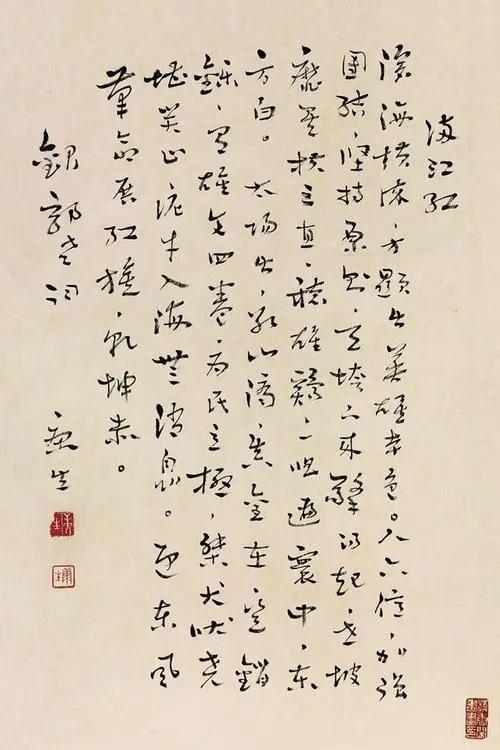 满江红
沧海横流，方顕出英雄本色。人六億，加强
团结，坚持原则，天垮下来擎得起，世披
靡矣扶之直，聽雄鷄一唱遍寰中，东
方白。太陽出，冰山滴，真金在，豈銷
鑠，有雄文四卷，为民立極，桀犬吠尧
堪笑止，泥牛入海無消息。迎东风
革命展红旗，乾坤赤。
錄郭老词
康生